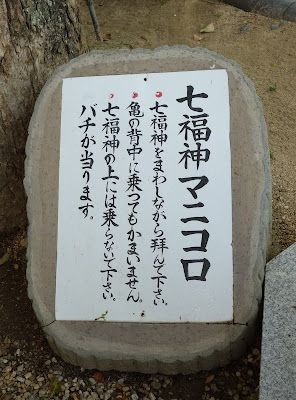 七福神マニコロ
七福神をまわしながら拝んで下さい。
亀の背中に乗つてもかまいません。
七福神の上には乗らないで下さい。
バチが当ります。